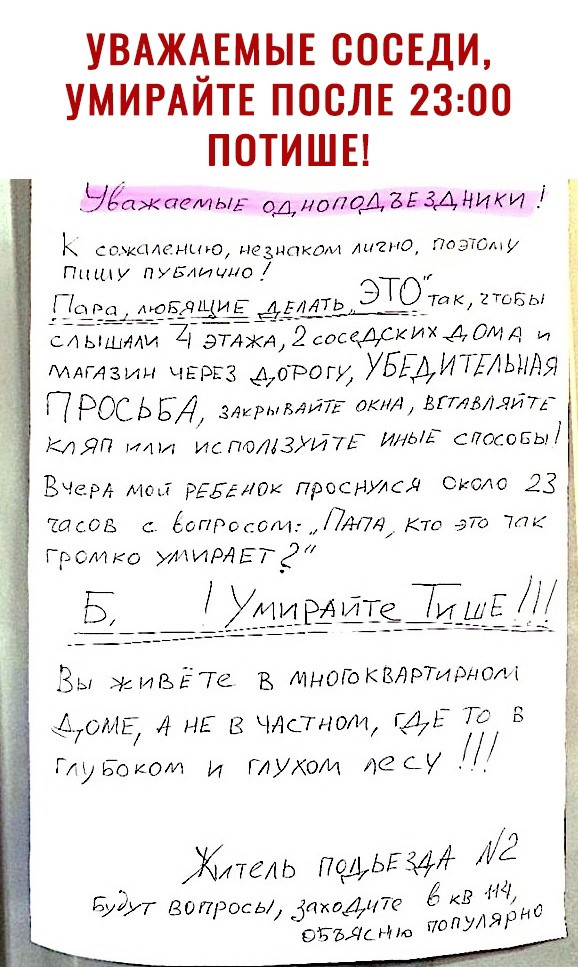 УВАЖАЕМЫЕ СОСЕДИ,
УМИРАЙТЕ ПОСЛЕ 23:00
ПОТИШЕ!
Уважаемые одноподъездники!
К сожалению, незнаком лично, поэтому
пишу публично!
Пара, любящие делать „ЭТО" так, чтобы
слышали 4 этажа, 2 соседских дома и
магазин через дорогу, УБЕДИТЕЛЬНАЯ
ПРОСЬБА, закрывайте окна, вставляйте
кляп или используйте иные способы!
Вчера мой ребенок проснулся около 23
часов с вопросом: „Папа, кто это так
громко умирает?"
Б, ! Умирайте Тише!!!
Вы живёте в многоквартирном
доме, а не в частном, где то в
глубоком и глухом лесу!!!
Житель подьезда №2
Будут вопросы, заходите в кв 114,
объясню популярно